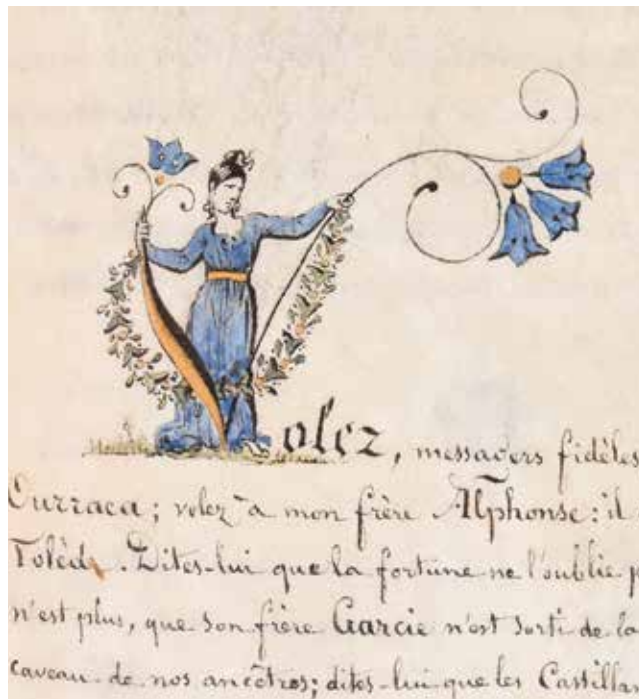 Volez, messagers fidèles
Ourraca; volez à mon frère Alphonse: il
Tolède. Dites-lui que la fortune ne l'oublie p
n'est plus, que son frère Garcie n'est sorti de la
caveau de nos ancêtres; dites-lui que les Castilla